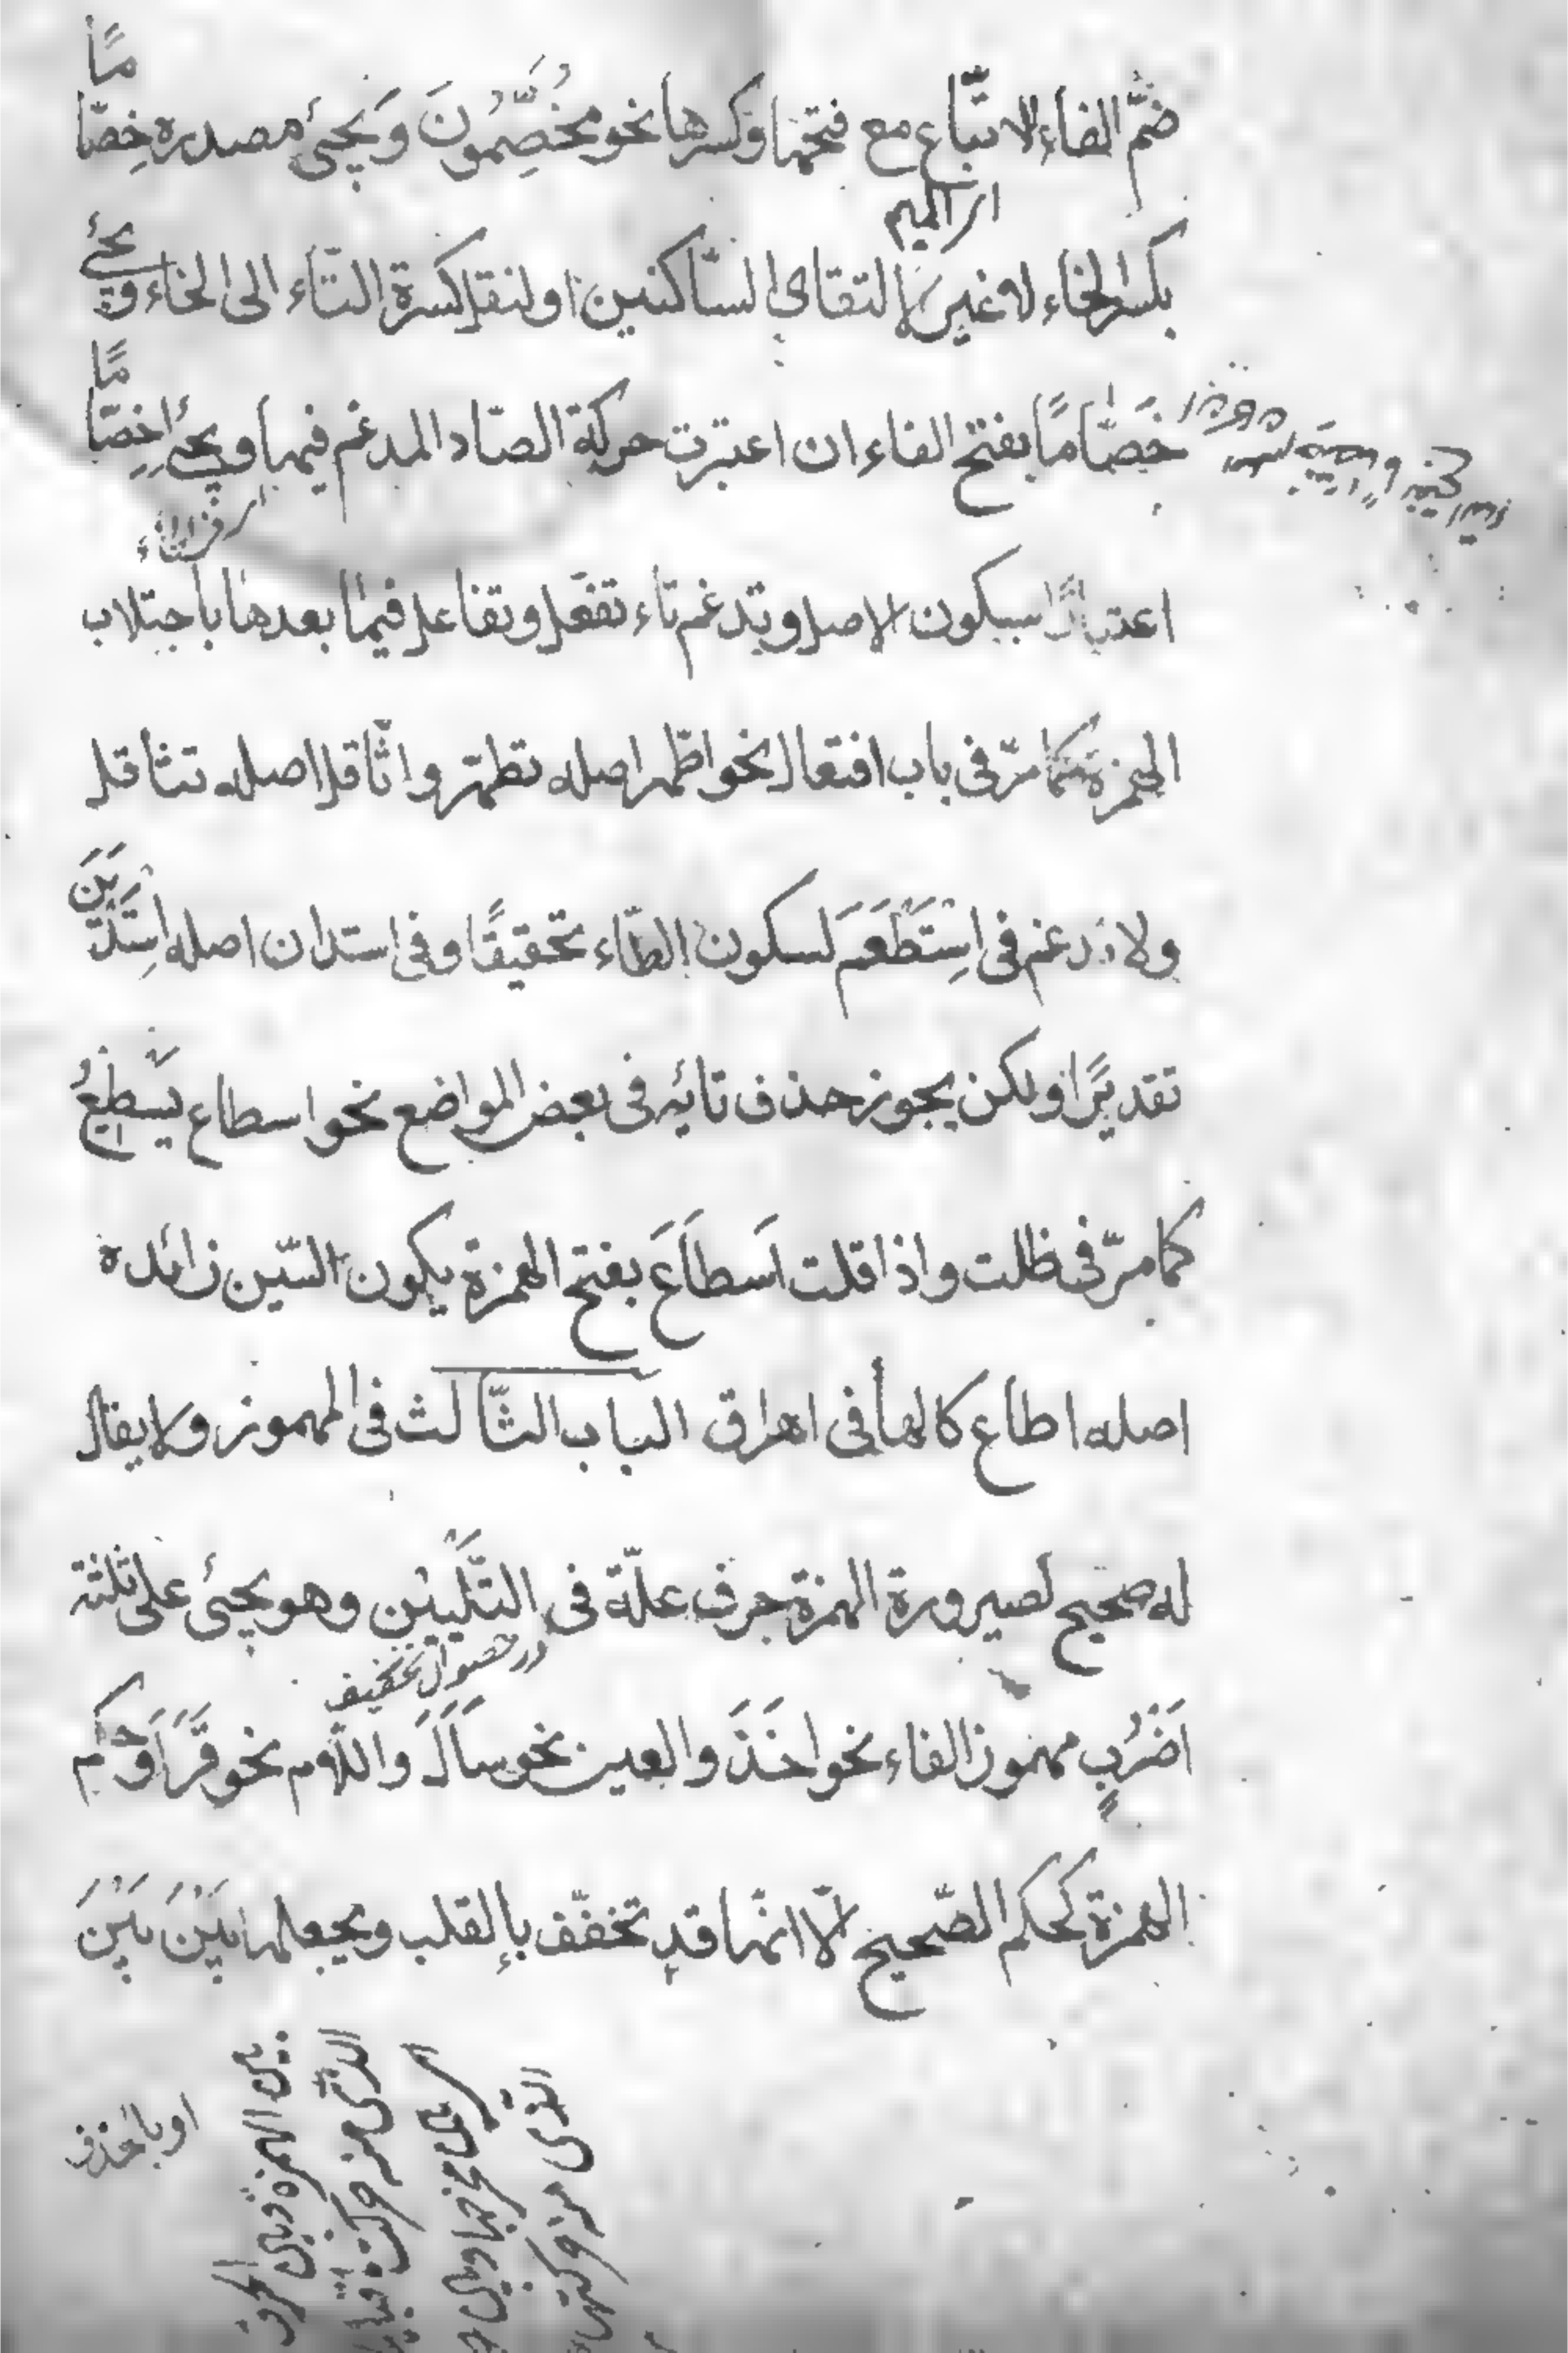 ضمّ الفاء للاتّباع مع فتحها وكسرها نحو مُخُصِّمُونَ وَيجئ مصدره خِصّا
مًا
بكسر الخاء لا غير لالتقاى السّاكنين او لنقل كسرة التّاء الى الخاء و
يجئ
خَصَّامًا بفتح الفاء ان اعتبرت حركة الصّاد المدغم فيها ويجئ اِخِصّا
مًا
اعتبارًا بسكون الاصل وتدغم تاء تفعّل وتفاعل فيما بعدها باجتلاب
الهمزة كما مرّ فى باب افتعال نحو اطّهر اصله تطهّر واثّاقل اصله تثاقل
ولا تدغم فى اِسْتَطْعَمَ لسكون الطّاء تحقيقًا وفى استدان اصله اِسْتَدْ
يَنَ
تقديرًا ولكن يجوز حذف تائه فى بعض المواضع نحو اسطاع يَسْطِيْعُ
كما مرّ فى ظلت واذا قلت اَسطَاَعَ بفتح الهمزة يكون السّين زائدة
اصله اطاع كالهأ فى اهراق الباب الثّالث فى المهموز ولا يقال
له صحيح لصيرورة الهمزة حرف علّة فى التّليين وهو يجئ على ثلثة
اَضْرُبٍ مهموز الفاء نحو اخَذَ والعين نحو سَاَلَ وَاللّام نحو قَرَاَ وَحكم
الهمزة كحكم الصّحيح الّا انّها قد تخفّف بالقلب ويجعلها بَيْنَ بَيْنَ
او بالحذف